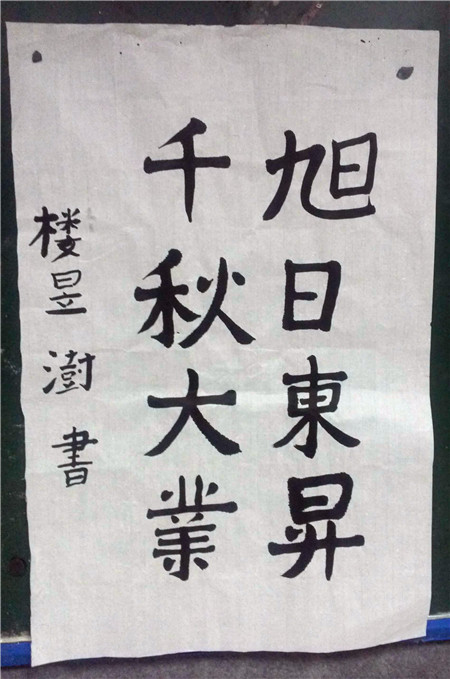 旭日東昇
千秋大業
楼昱澍書